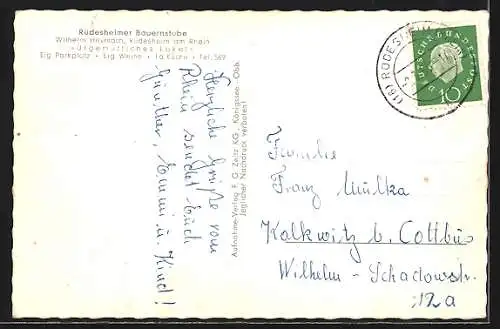 Rüdesheimer Bauernstube
Wilhelm Heymach, Rüdesheim am Rhein
»Urgemütliches Lokal«
Eig. Parkplatz · Eig. Weine · Tel. 569
Herzliche Grüße vom
Rhein sendet Euch
Günther, Emmi u. Kind!
Aufnahme-Verlag F. G. Zeitz KG., Königssee-Obb.
Jeglicher Nachdruck verboten!
(16) RÜDESHEIM
DEUTSCHE BUNDESPOST
10
Familie
Franz Multka
Kolkwitz b. Cottbus
Wilhelm-Schadowstr.
12a